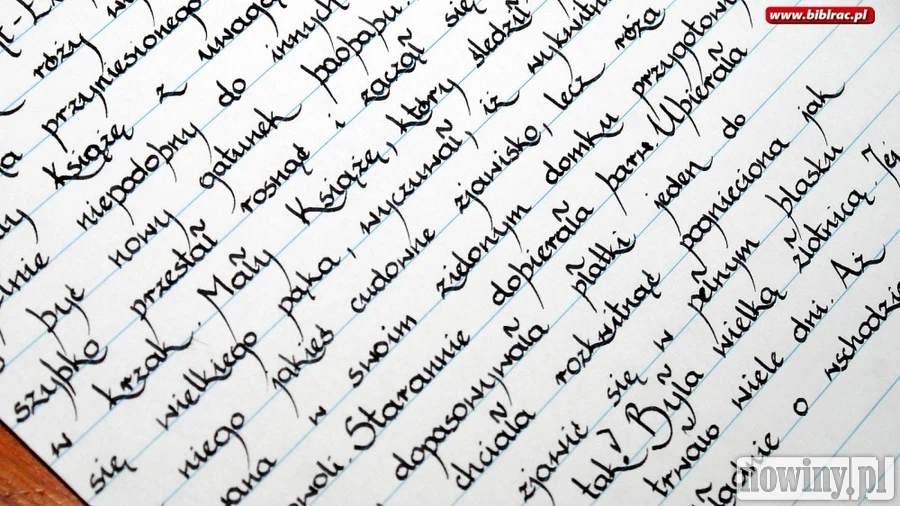 www.biblrac.pl
róży
przyniesionego
Książę z uwagą
niepodobny do innych
być nowy gatunek baobabu.
szybko przestał rosnąć i zaczął się
w krzak. Mały Książę, który śledził
się wielkiego pąka, wyczuwał, iż wykwitnie
z niego jakieś cudowne zjawisko, lecz róża
w swoim zielonym domku przygotowy
Starannie dobierała barw. Ubierała
dopasowywała płatki jeden do
chciała rozkwitnąć pognieciona jak
zjawić się w pełnym blasku
tak! Była wielką złotnicą. Jej
trwało wiele dni. Aż
o wschodzie
nowiny.pl